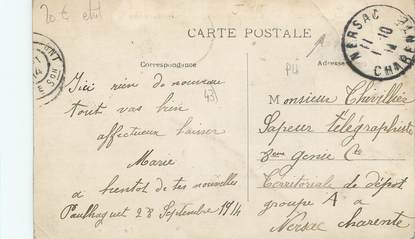 20 €
CARTE POSTALE
Correspondance
Adresse
NERSAC
11-10
14
CHARENTE
Ici rien de nouveau
tout vas bien
affectueux baiser
Marie
a bientot de tes nouvelles
Paulhaguet 28 Septembre 1914
(43)
P14
Monsieur Chivillier
Sapeur télégraphiste
8eme genie Cie
Territoriale de dépot
groupe A a
Nersac Charente